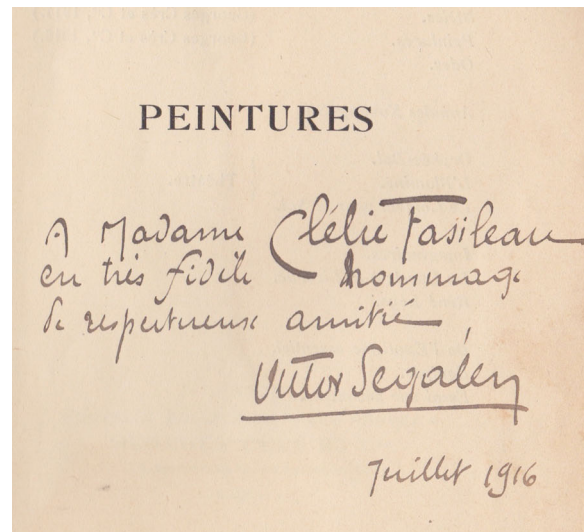 PEINTURES
A Madame Clélie Fasileau
en très fidèle hommage
de respectueuse amitié,
Victor Segalen
Juillet 1916